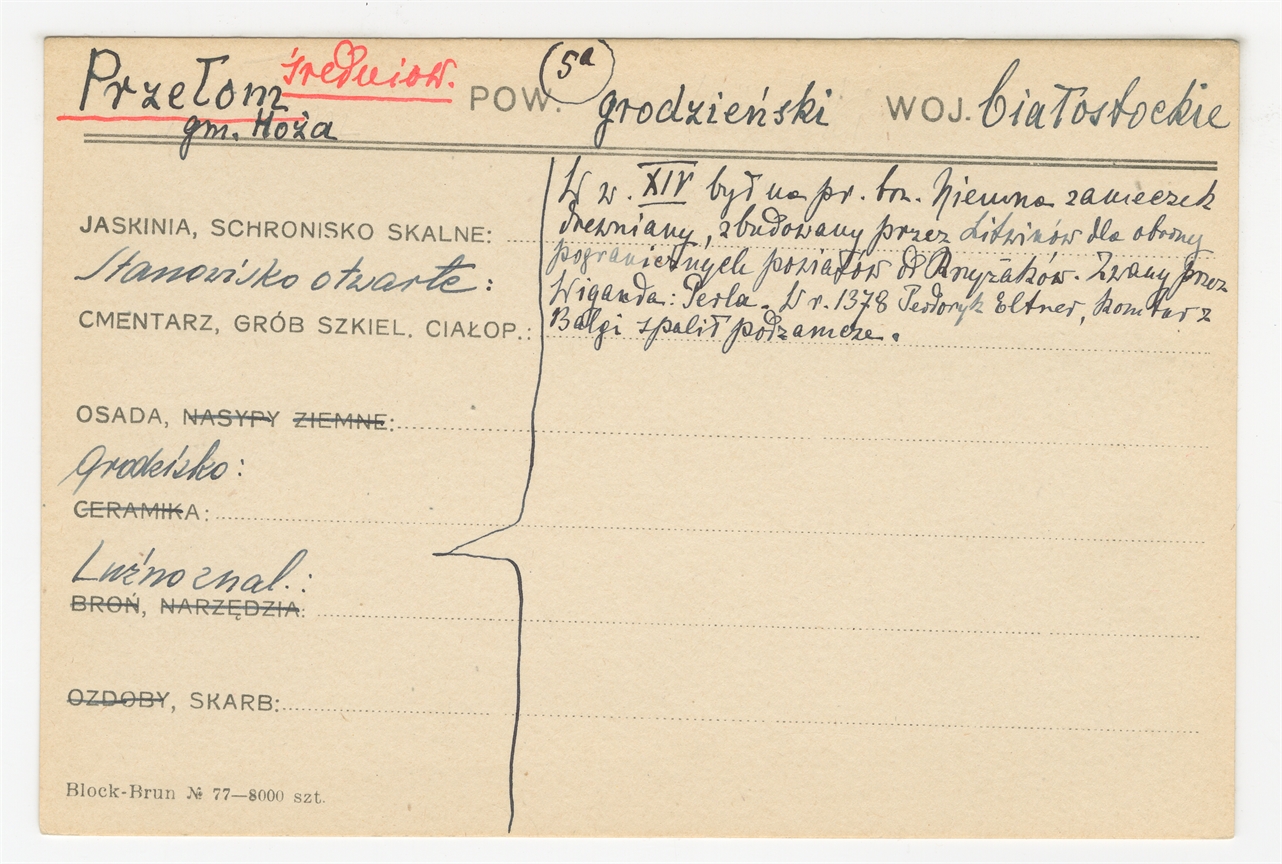 Przełom średniow. POW. (5a) grodzieński WOJ. białostockie
gm. Hoża
W w. XIV był na pr. brz. Niemna zameczek
drewniany, zbudowany przez Litwinów dla obrony
JASKINIA, SCHRONISKO SKALNE:
pogranicznych powiatów od Krzyżaków. Zwany przez
Stanowisko otwarte:
Wiganda: Perla. W r. 1378 Teodoryk Eltner, komtur z
CMENTARZ, GRÓB SZKIEL. CIAŁOP.:
Balgi spalił podzamcze.
OSADA, NASYPY ZIEMNE:
Grodzisko:
CERAMIKA:
Luźno znal.:
BROŃ, NARZĘDZIA:
OZDOBY, SKARB:
Block-Brun № 77—8000 szt.